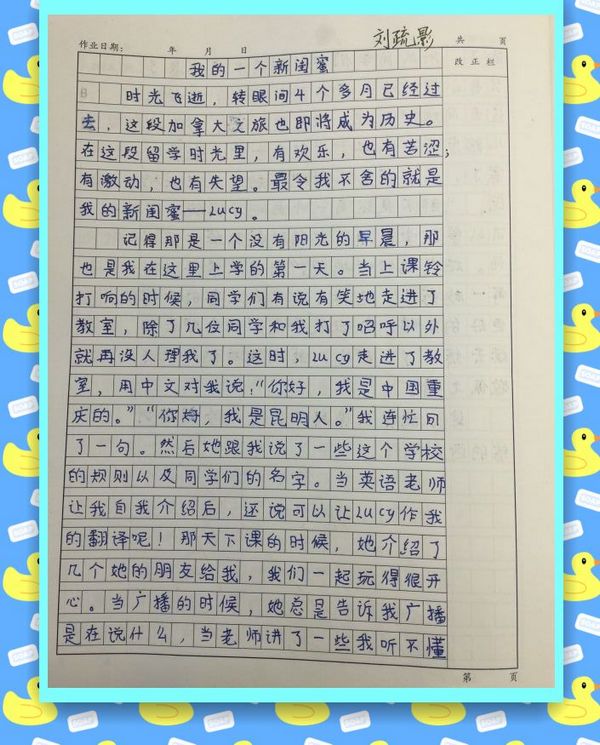 刘疏影
作业日期: 年 月 日 共 页
我的一个新闺蜜 改正栏
时光飞逝，转眼间4个多月已经过
去，这段加拿大之旅也即将成为历史。
在这段留学时光里，有欢乐，也有苦涩；
有激动，也有失望。最令我不舍的就是
我的新闺蜜——Lucy。
记得那是一个没有阳光的早晨，那
也是我在这里上学的第一天。当上课铃
打响的时候，同学们有说有笑地走进了
教室，除了几位同学和我打了招呼以外
就再没人理我了。这时，Lucy走进了教
室，用中文对我说：“你好，我是中国重
庆的。”“你好，我是昆明人。”我连忙回
了一句。然后她跟我说了一些这个学校
的规则以及同学们的名字。当英语老师
让我自我介绍后，还说可以让Lucy作我
的翻译呢！那天下课的时候，她介绍了
几个她的朋友给我，我们一起玩得很开
心。当广播的时候，她总是告诉我广播
是在说什么，当老师讲了一些我听不懂
第 页
SOAP